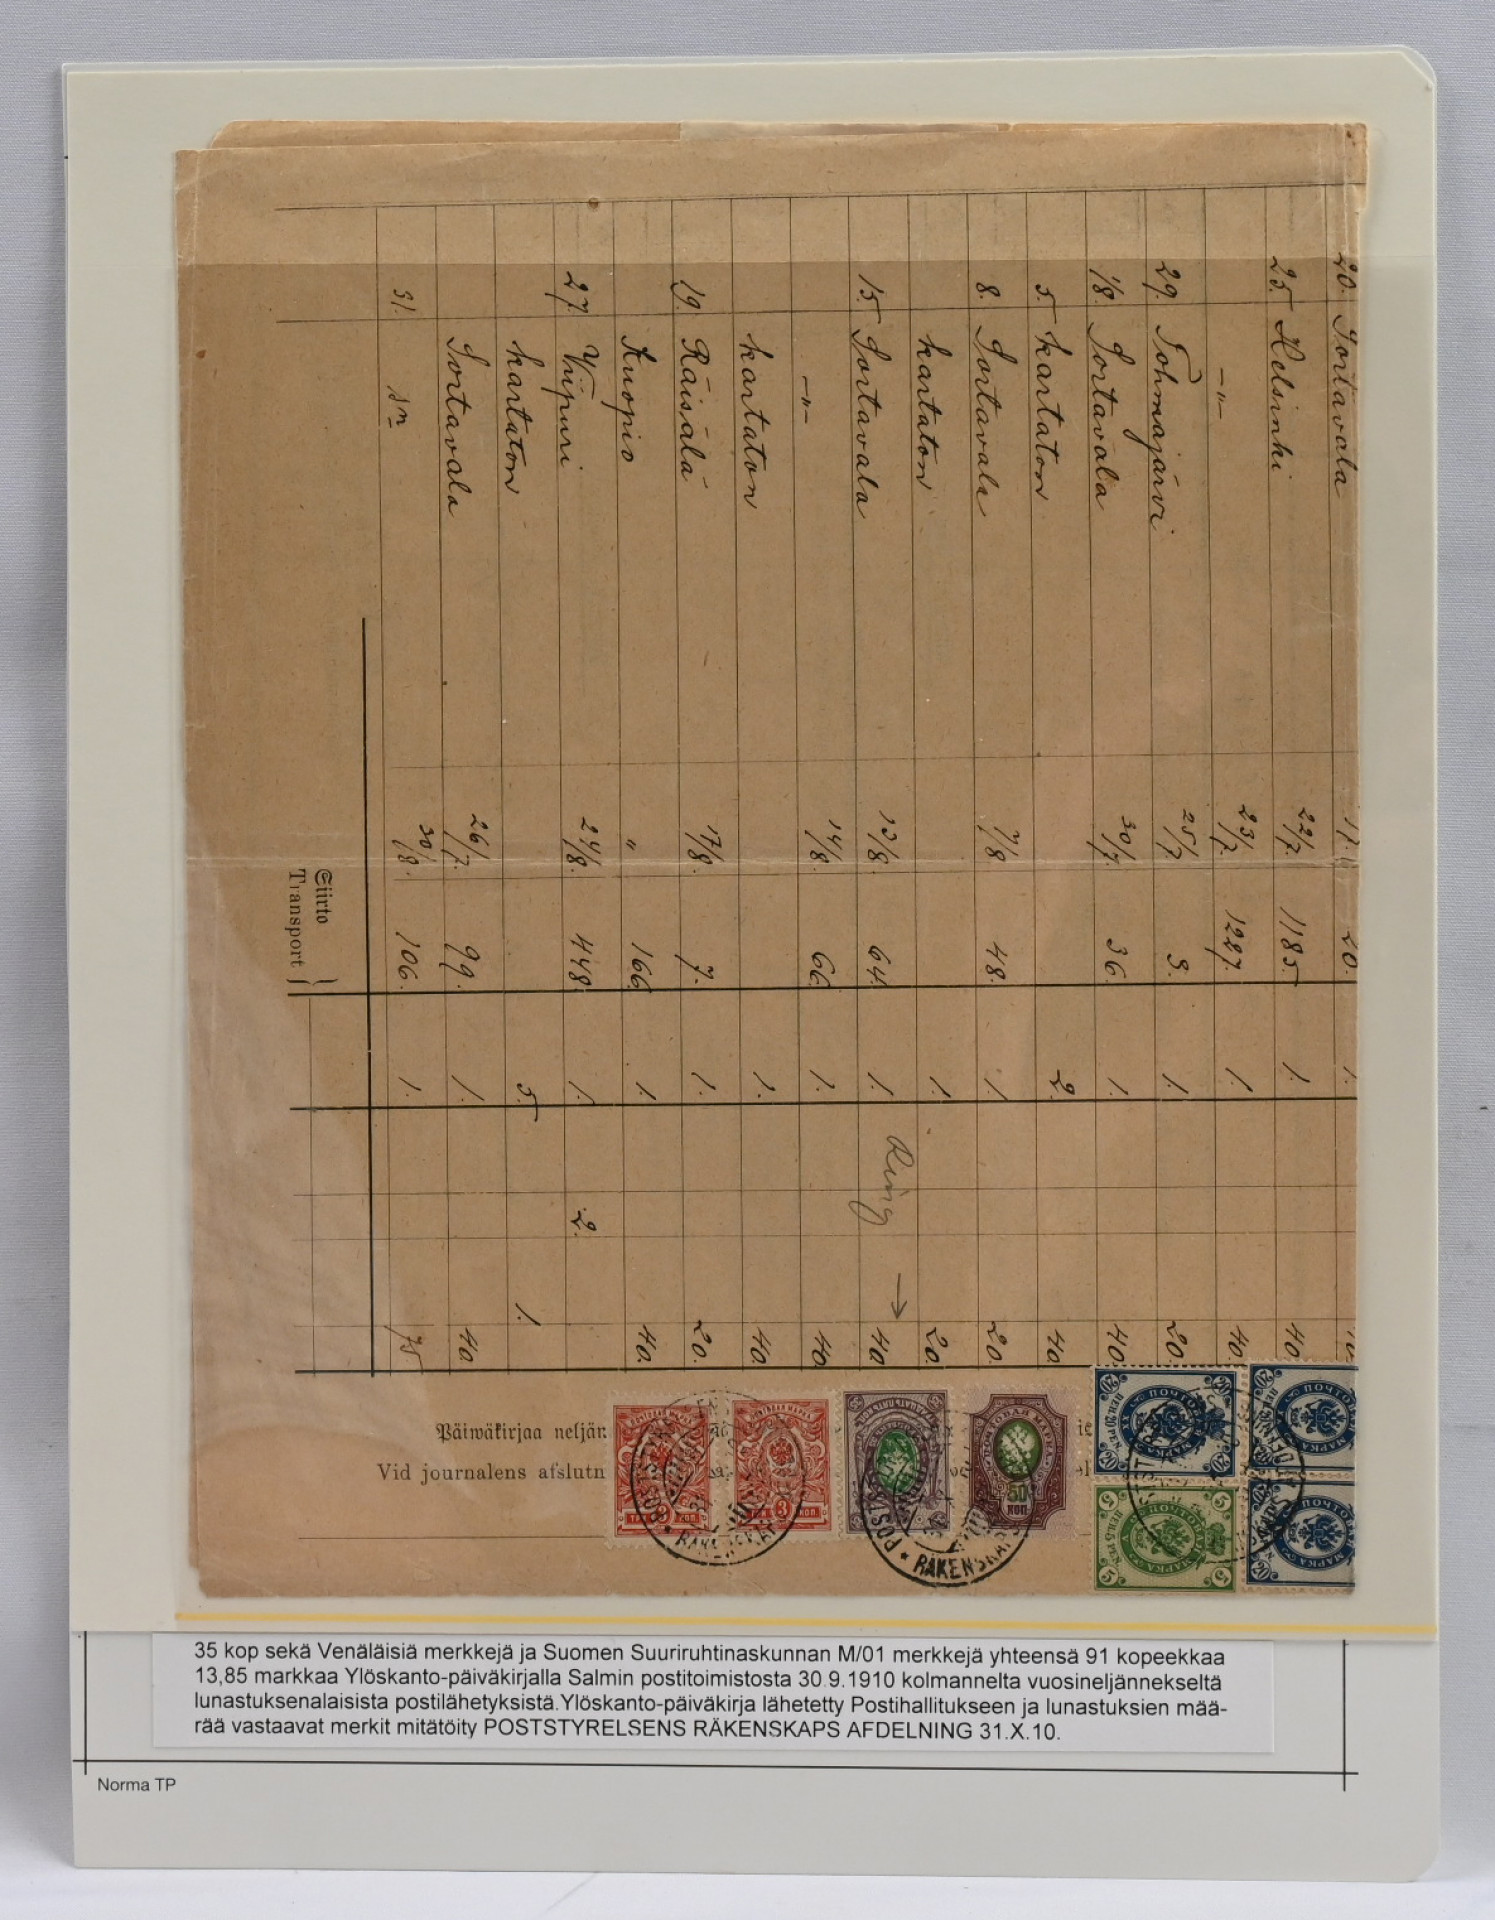 20. Sortavala 20. 1.
25. Helsinki 22/7. 1185. 1. 40
–"– 23/7. 1227. 1. 40.
29. Tohmajärvi 25/7 3. 1. 20.
18. Sortavala 30/7. 36. 1. 40
5. kartaton 2. 40
8. Sortavala 7/8 48. 1. 20.
kartaton 1. 20
15. Sortavala 13/8. 64. 1. 40
–"– 14/8. 66. 1. 40
kartaton 1. 40.
19. Räisälä 17/8. 7. 1. 20.
Kuopio " 166. 1. 40.
27. Viipuri 24/8. 448. 1. 2.
kartaton 5. 1.
Sortavala 26/7. 99. 1. 40
31. Sm 30/8. 106. 1. 75
Siirto
Transport
Ring →
Päiwäkirjaa neljän
Vid journalens afslutn
POSTS
RÄKENSKAPS
50
КОП
ТРИ 3 КОП.
ТРИ 3 КОП.
20 20
5 5
35 kop sekä Venäläisiä merkkejä ja Suomen Suuriruhtinaskunnan M/01 merkkejä yhteensä 91 kopeekkaa
13,85 markkaa Ylöskanto-päiväkirjalla Salmin postitoimistosta 30.9.1910 kolmannelta vuosineljännekseltä
lunastuksenalaisista postilähetyksistä.Ylöskanto-päiväkirja lähetetty Postihallitukseen ja lunastuksien mää-
rää vastaavat merkit mitätöity POSTSTYRELSENS RÄKENSKAPS AFDELNING 31.X.10.
Norma TP